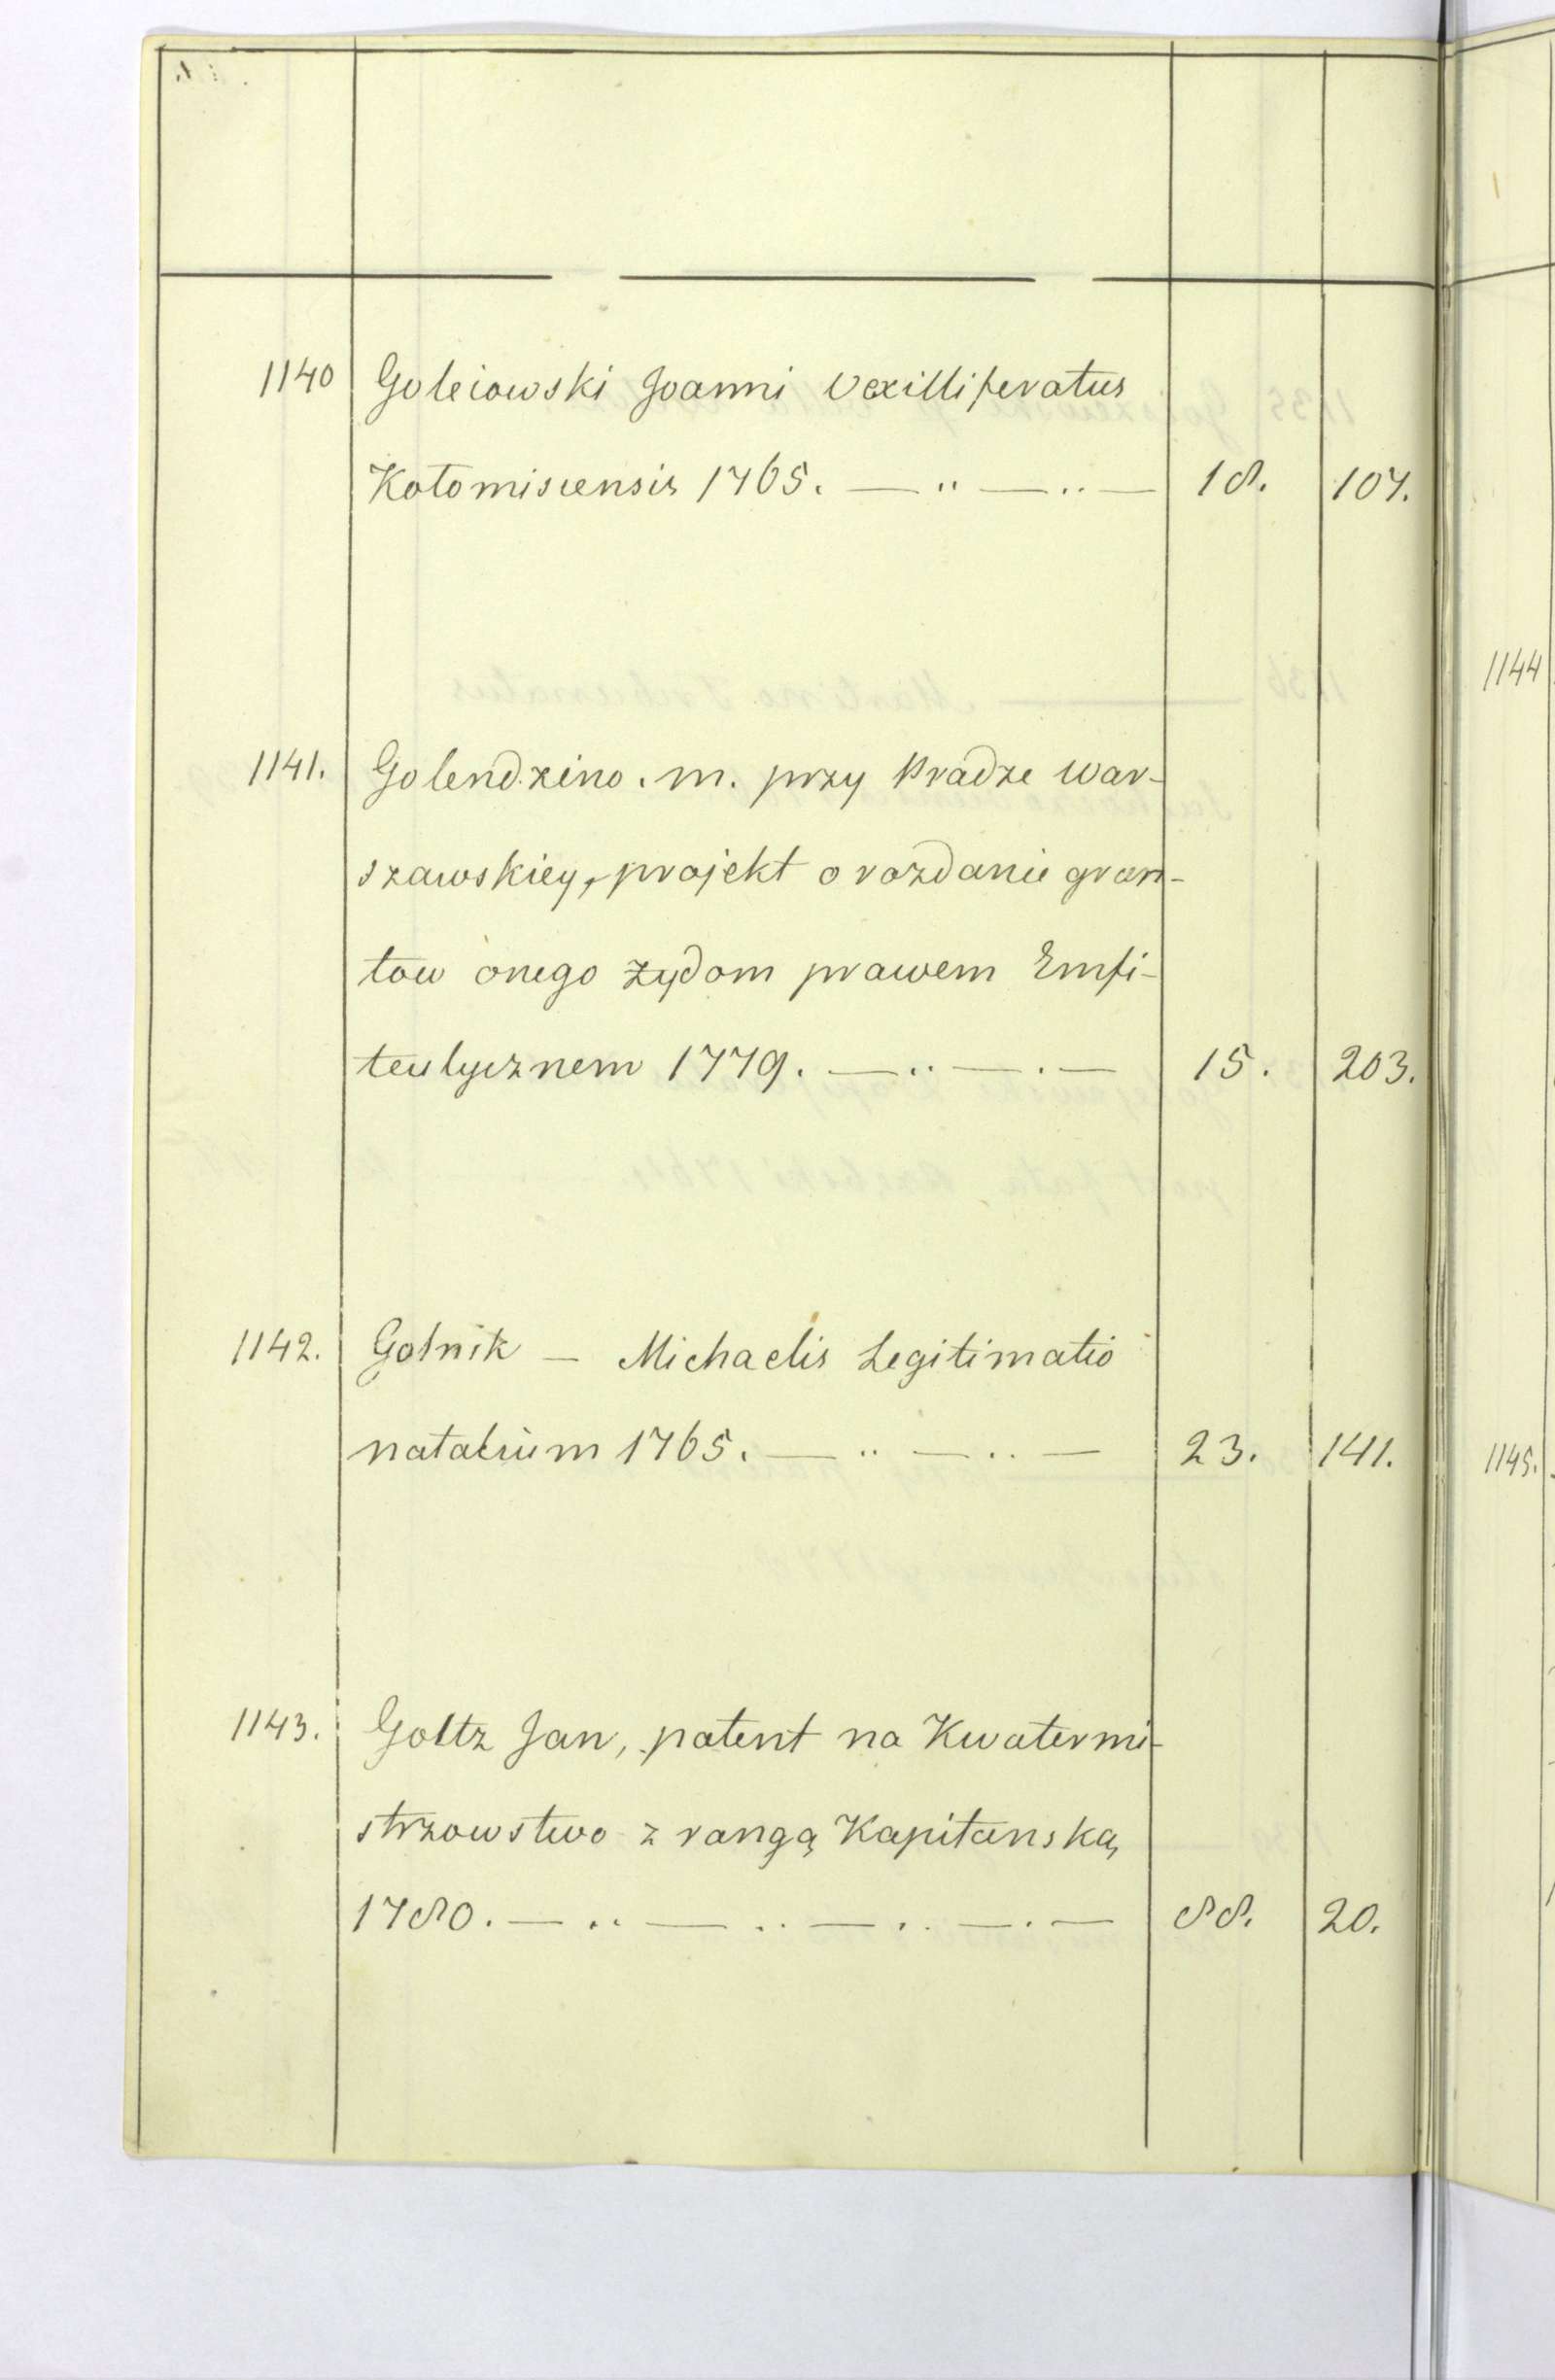 1140 Goleiowski Joanni Vexilliferatus
Kołomisiensis 1765. — " — .. — 18. 107.
1141. Golendzino. m. przy Pradze War-
szawskiey, projekt o rozdanie grun-
tow onego żydom prawem Emfi-
teutycznem 1779. — .. — . — 15. 203.
1142. Golnik — Michaelis Legitimatio
natalium 1765. — .. — .. — 23. 141.
1143. Goltz Jan, patent na Kwatermi-
strzowstwo z rangą Kapitanską
1780. — .. — .. — .. — . — 88. 20.
1144
1145.